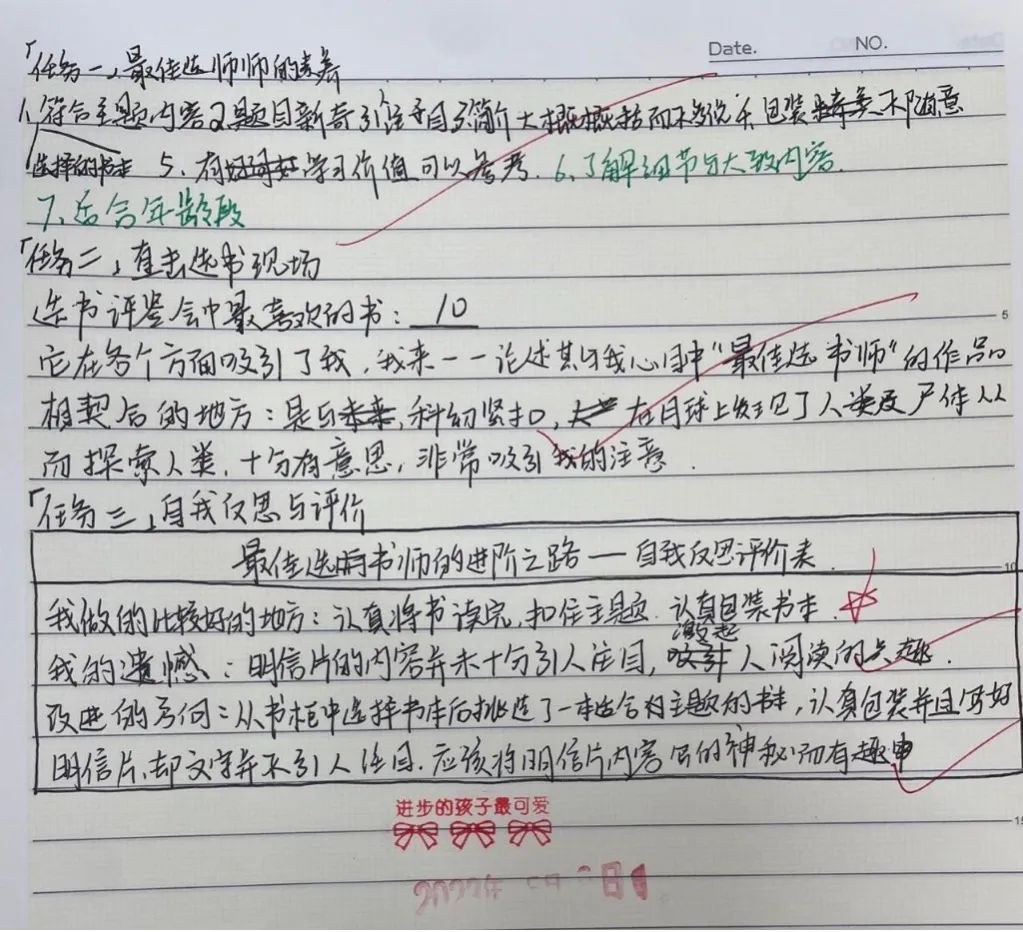 Date. NO.
「任务一、最佳选师师的素养
1、符合主题内容 2、题目新奇引注目 3、简介大概概括而不多说 4、包装 不随意
选择的书本 5、有 学习价值可以参考. 6、了解细节与大致内容.
7、适合年龄段
「任务二、直击选书现场
选书评鉴会中最喜欢的书：10
它在各个方面吸引了我，我来一一论述其与我心目中"最佳选书师"的作品
相契合的地方：是与 科幻紧扣， 在月球上发现了人类及尸体从
而探索人类，十分有意思，非常吸引我的注意.
「任务三、自我反思与评价
最佳选书师的进阶之路——自我反思评价表.
我做的比较好的地方：认真将书读完，扣住主题. 认真包装书本.
我的遗憾：明信片的内容并未十分引人注目，激起人阅读的兴趣.
改进的方向：从书柜中选择书本后挑选了一本适合为主题的书本，认真包装并且写好
明信片，却文字并不引人注目. 应该将明信片内容写的神秘而有趣
进步的孩子最可爱
5
10
15